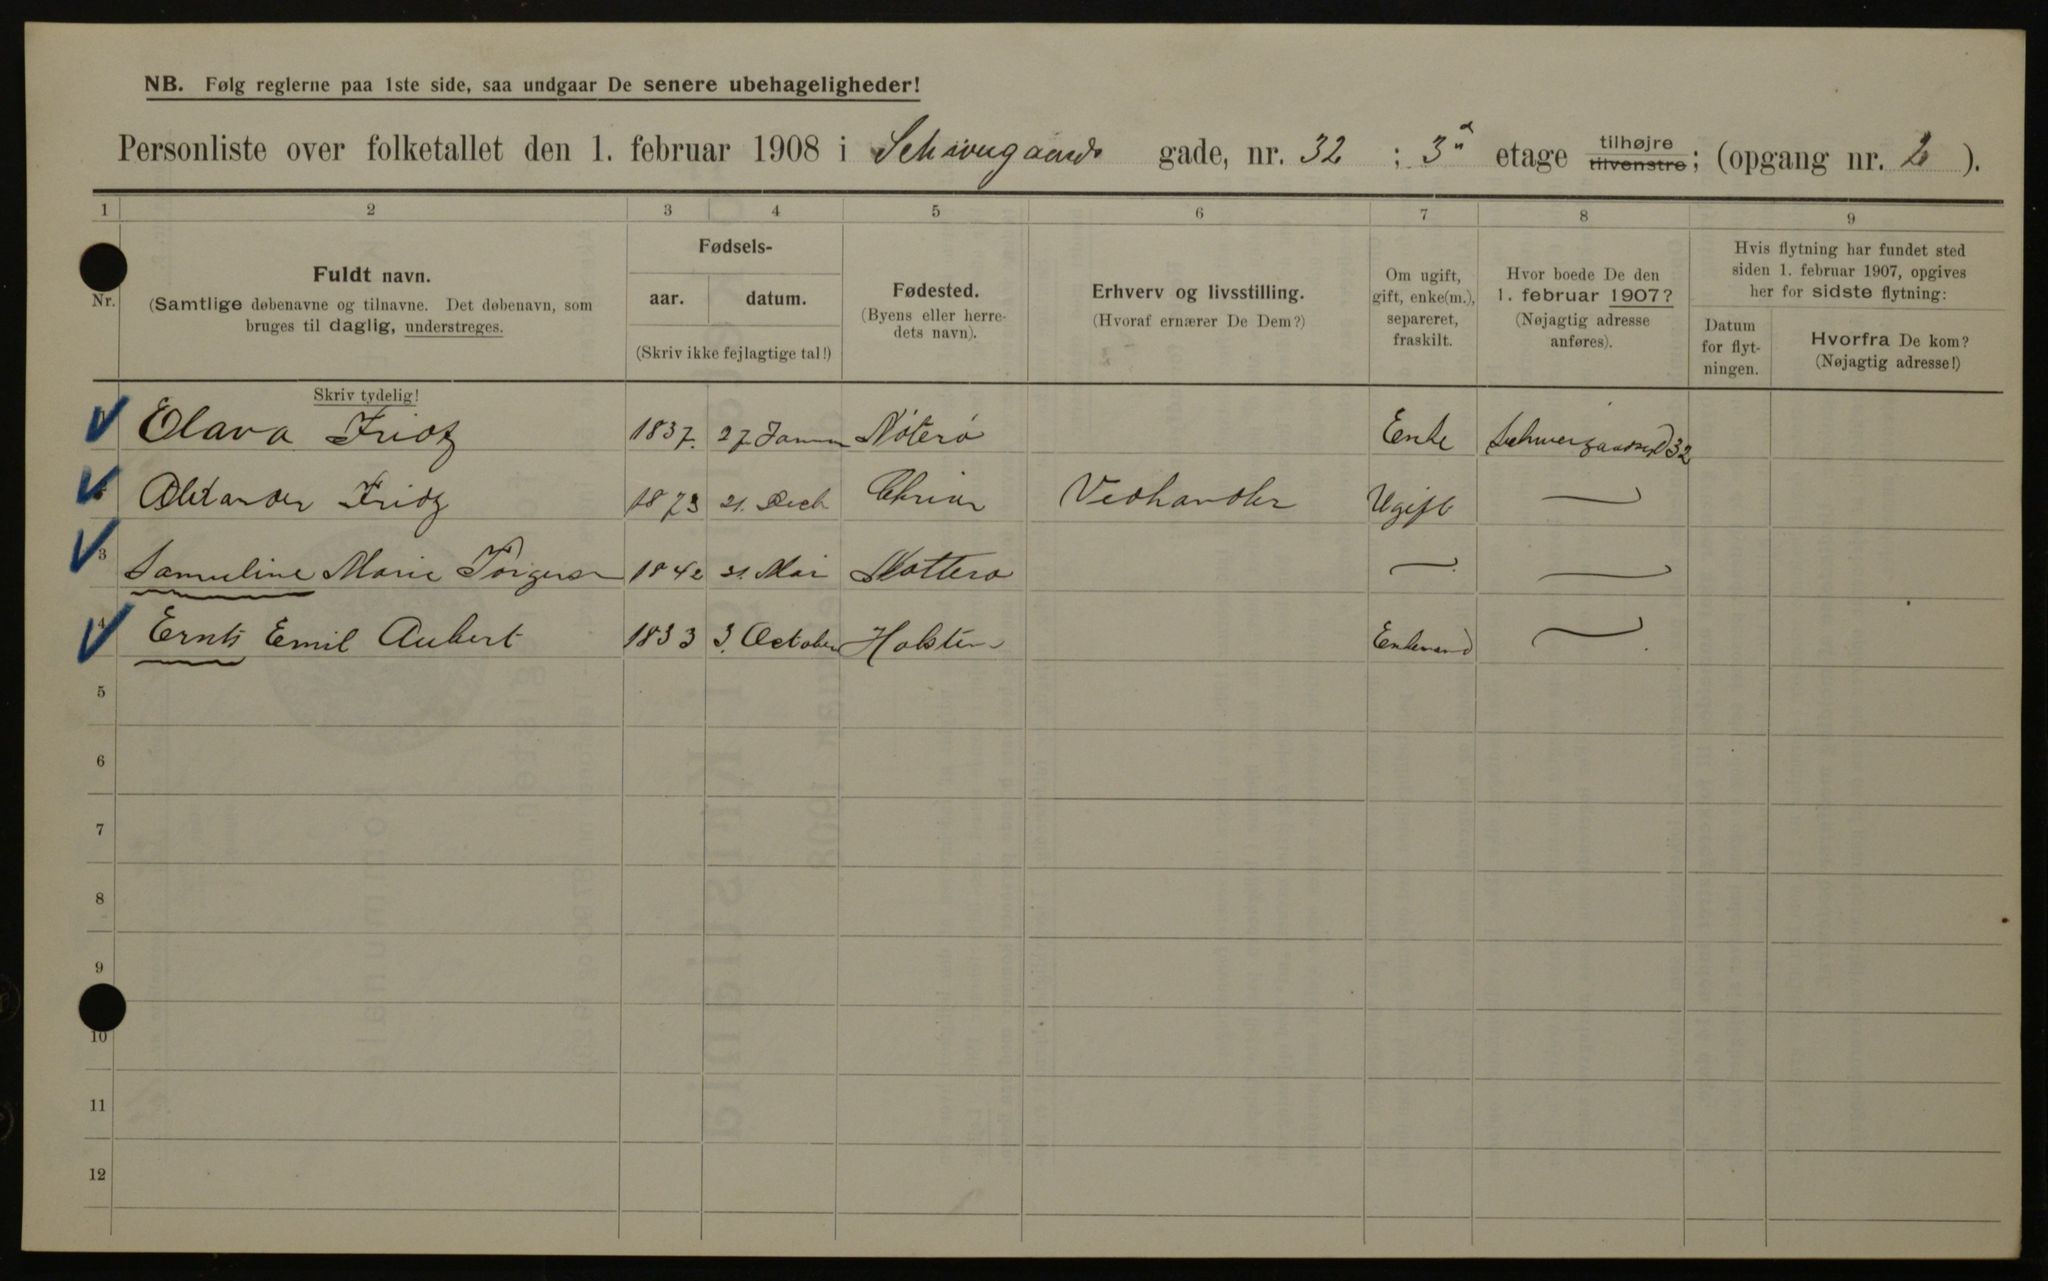 NB. Følg reglerne paa 1ste side, saa undgaar De senere ubehageligheder!
Personliste over folketallet den 1. februar 1908 i Schweigaards gade, nr. 32 ; 3 etage tilhøjre tilvenstre; (opgang nr. 2 ).
1 2 3 4 5 6 7 8 9
Nr.
Fuldt navn.
(Samtlige døbenavne og tilnavne. Det døbenavn, som
bruges til daglig, understreges.
Fødsels-
aar. datum.
(Skriv ikke fejlagtige tal!)
Fødested.
(Byens eller herre-
dets navn).
Erhverv og livsstilling.
(Hvoraf ernærer De Dem?)
Om ugift,
gift, enke(m.),
separeret,
fraskilt.
Hvor boede De den
1. februar 1907?
(Nøjagtig adresse
anføres).
Hvis flytning har fundet sted
siden 1. februar 1907, opgives
her for sidste flytning:
Datum
for flyt-
ningen.
Hvorfra De kom?
(Nøjagtig adresse!)
Skriv tydelig!
Olava Fridtz 1837. 27 Nøterø Enke 32
Alexander Fridtz 1873 21. Dech Vedhandler Ugift —
3 Samuline Marie Torgersen 1842 21. Mai Nøtterø — —
4 Ernts Emil Aubert 1833 3. October Holsten Enkemand —
5
6
7
8
9
10
11
12